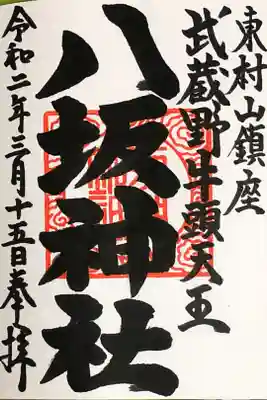 東村山鎮座
武蔵野牛頭天王
八坂神社
令和二年三月十五日奉拝